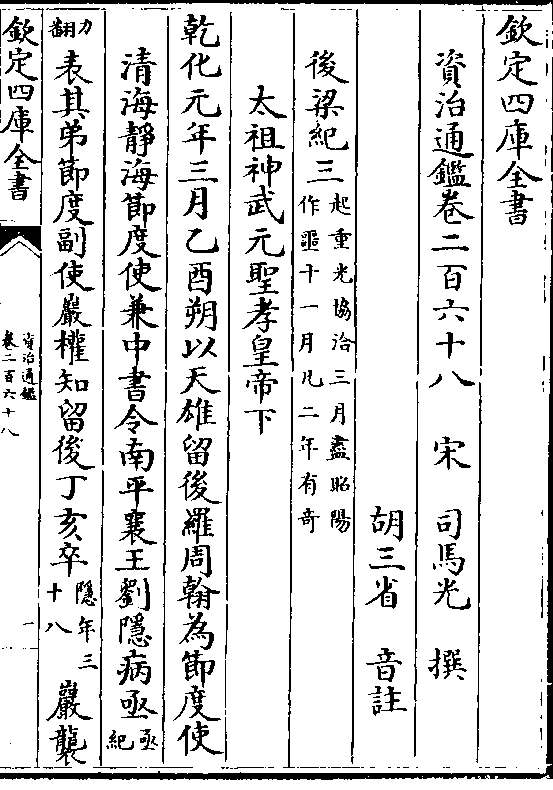 欽定四庫全書
資治通鑑卷二百六十八　宋　司馬光　撰
胡三省　音註
後梁紀三起重光協洽三月盡昭陽
作噩十一月凡二年有奇
太祖神武元聖孝皇帝下
乾化元年三月乙酉朔以天雄留後羅周翰為節度使
清海靜海節度使兼中書令南平襄王劉隱病亟亟
紀
力
翻表其弟節度副使巖權知留後丁亥卒隱年三
十八巖襲
欽定四庫全書
資治通鑑
卷二百六十八
一